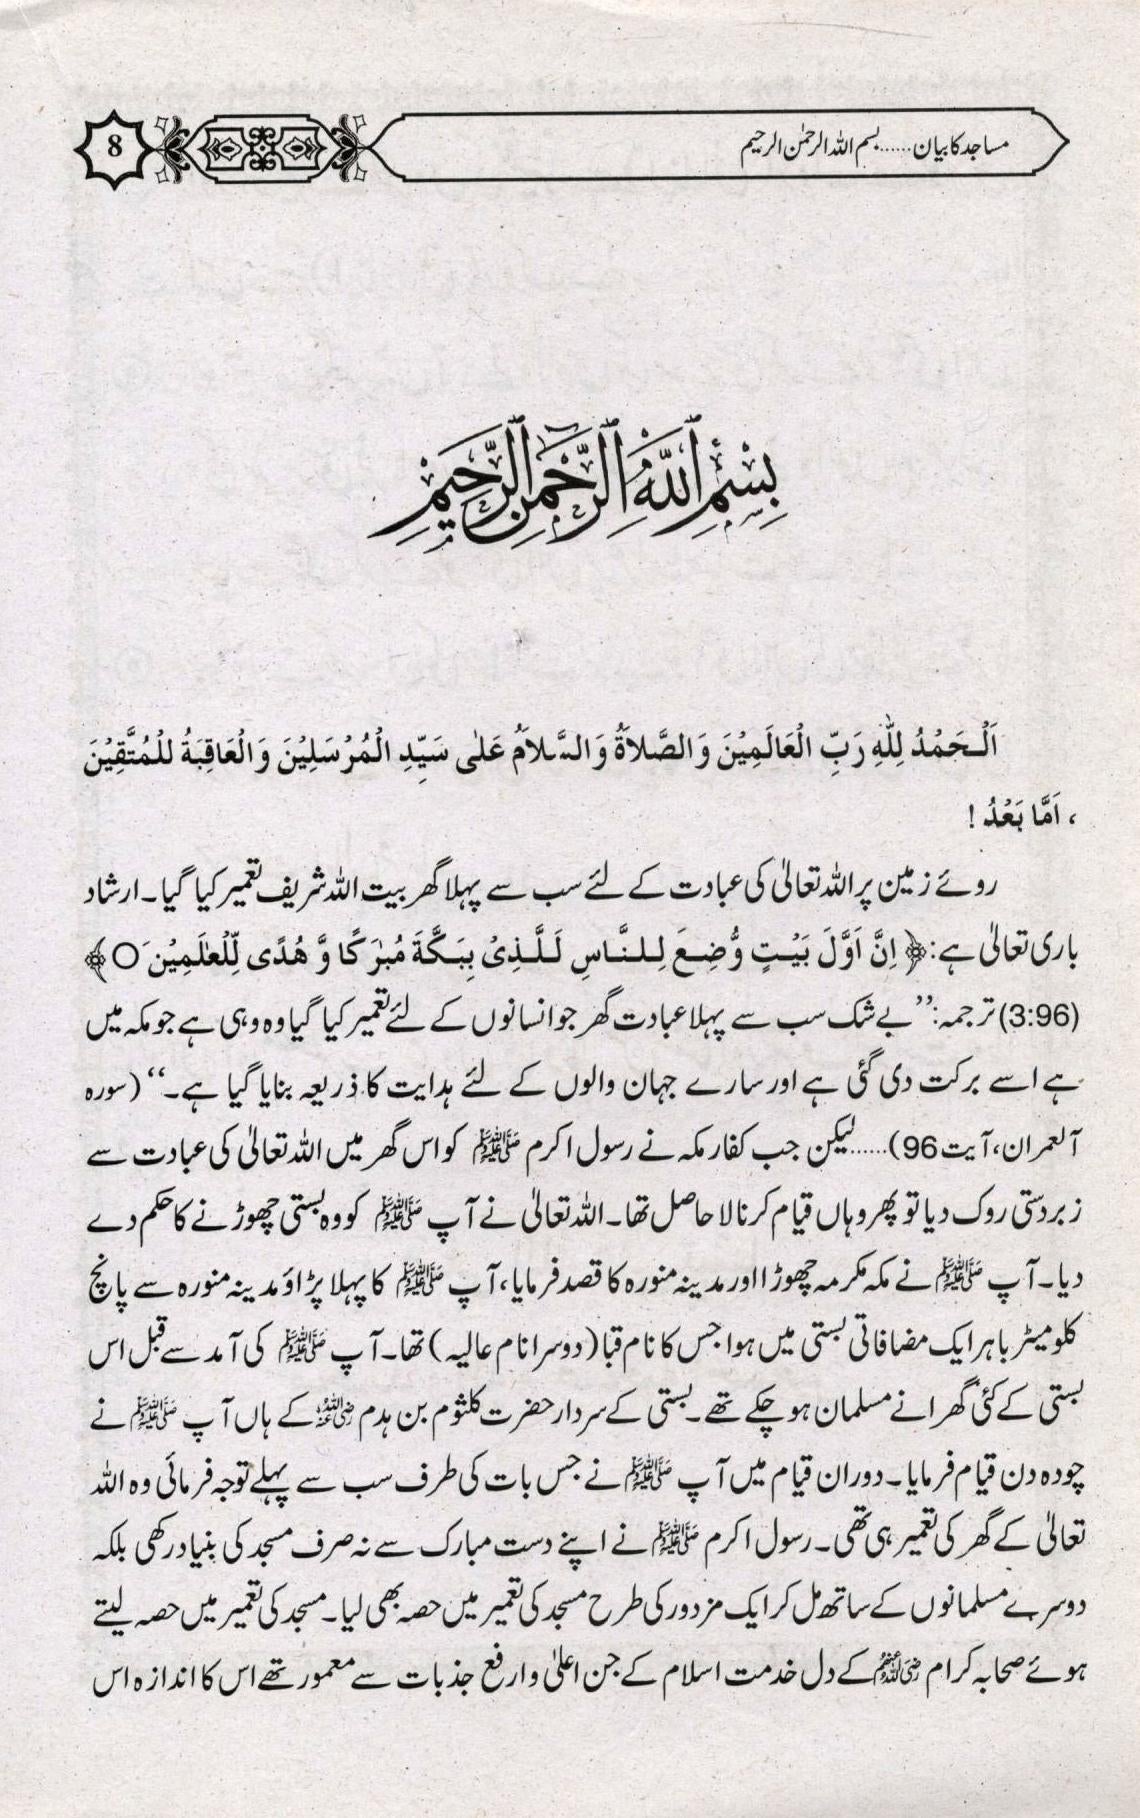 مساجد کا بیان......بسم اللہ الرحمٰن الرحیم
8
بِسْمِ اللّٰهِ الرَّحْمٰنِ الرَّحِيْمِ
اَلْحَمْدُ لِلّٰهِ رَبِّ الْعَالَمِيْنَ وَالصَّلاَةُ وَالسَّلاَمُ عَلٰى سَيِّدِ الْمُرْسَلِيْنَ وَالْعَاقِبَةُ لِلْمُتَّقِيْنَ
، اَمَّا بَعْدُ !
روئے زمین پر اللہ تعالیٰ کی عبادت کے لئے سب سے پہلا گھر بیت اللہ شریف تعمیر کیا گیا۔ ارشاد
باری تعالیٰ ہے:﴿ اِنَّ اَوَّلَ بَيْتٍ وُّضِعَ لِلنَّاسِ لَلَّذِىْ بِبَكَّةَ مُبٰرَكًا وَّ هُدًى لِّلْعٰلَمِيْنَ ○﴾
(3:96) ترجمہ: ’’بے شک سب سے پہلا عبادت گھر جو انسانوں کے لئے تعمیر کیا گیا وہ وہی ہے جو مکہ میں
ہے اسے برکت دی گئی ہے اور سارے جہان والوں کے لئے ہدایت کا ذریعہ بنایا گیا ہے۔‘‘ (سورہ
آلعمران، آیت 96)......لیکن جب کفار مکہ نے رسول اکرم ﷺ کو اس گھر میں اللہ تعالیٰ کی عبادت سے
زبردستی روک دیا تو پھر وہاں قیام کرنا لا حاصل تھا۔ اللہ تعالیٰ نے آپ ﷺ کو وہ بستی چھوڑنے کا حکم دے
دیا۔ آپ ﷺ نے مکہ مکرمہ چھوڑا اور مدینہ منورہ کا قصد فرمایا، آپ ﷺ کا پہلا پڑاؤ مدینہ منورہ سے پانچ
کلومیٹر باہر ایک مضافاتی بستی میں ہوا جس کا نام قبا (دوسرا نام عالیہ) تھا۔ آپ ﷺ کی آمد سے قبل اس
بستی کے کئی گھرانے مسلمان ہو چکے تھے۔ بستی کے سردار حضرت کلثوم بن ہدم رضی اللہ عنہ کے ہاں آپ ﷺ نے
چودہ دن قیام فرمایا۔ دوران قیام میں آپ ﷺ نے جس بات کی طرف سب سے پہلے توجہ فرمائی وہ اللہ
تعالیٰ کے گھر کی تعمیر ہی تھی۔ رسول اکرم ﷺ نے اپنے دست مبارک سے نہ صرف مسجد کی بنیاد رکھی بلکہ
دوسرے مسلمانوں کے ساتھ مل کر ایک مزدور کی طرح مسجد کی تعمیر میں حصہ بھی لیا۔ مسجد کی تعمیر میں حصہ لیتے
ہوئے صحابہ کرام رضی اللہ عنہم کے دل خدمت اسلام کے جن اعلیٰ و ارفع جذبات سے معمور تھے اس کا اندازہ اس